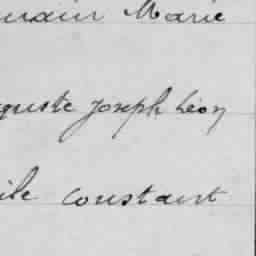 Marie
guste Joseph Léon
ile constant